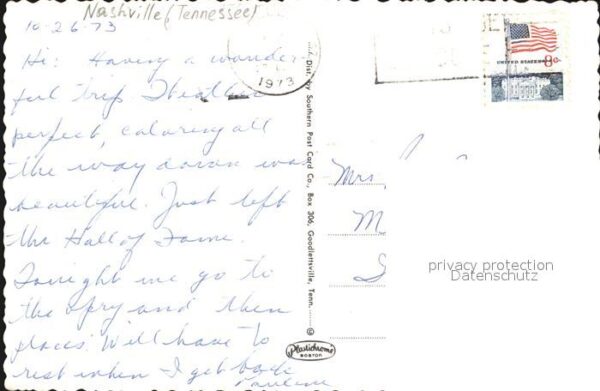 Nashville (Tennessee)
10-26-73
Hi: Having a wonder-
ful trip. Weather
perfect, coloring all
the way down was
beautiful. Just left
the Hall of Fame.
Tonight we go to
the Opry and then
places. Will have to
rest when I get back
Pauline
1973
UNITED STATES 8c
Dist. by Southern Post Card Co., Box 306, Goodlettsville, Tenn. ©
Mrs.
M
S
privacy protection
Datenschutz
Plastichrome
BOSTON